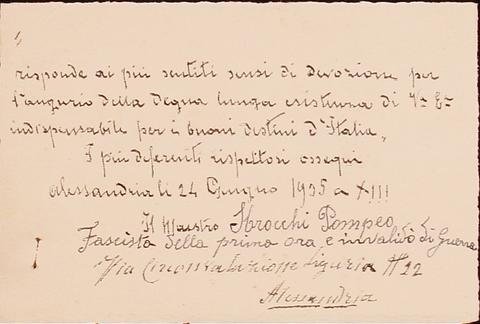 risponde ai più sentiti sensi di devozione per
l'augurio della degna lunga esistenza di V.a E.a
indispensabile per i buoni destini d'Italia,
I più deferenti rispettosi ossequi
Alessandria li 24 Giugno 1935 a XIII
Il Maestro Pompeo
Fascista della prima ora, e invalido di Guerra
Via Circonvalazione Liguria N 22
Alessandria